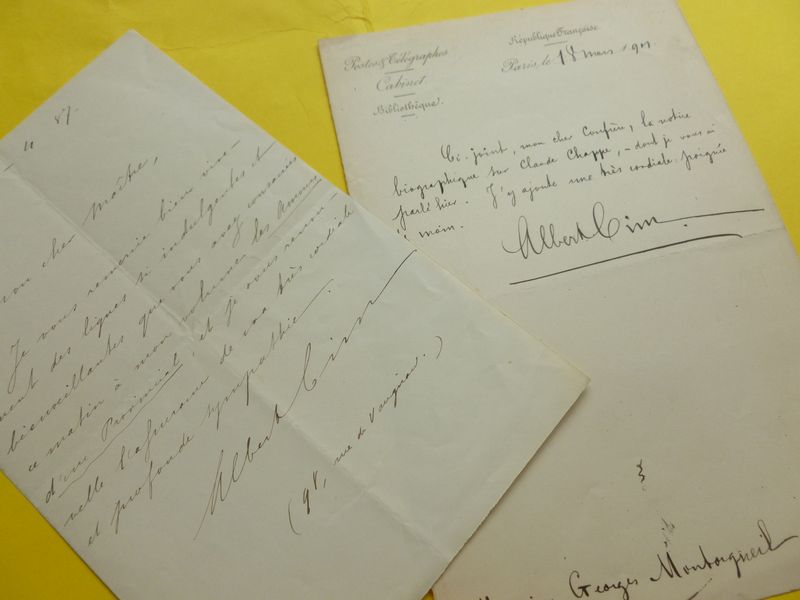 11 87.
mon cher Maître,
Je vous remercie bien vive-
ment des lignes si indulgentes et
bienveillantes que vous avez consacrées
ce matin à mon volume les Amours
d'un Provincial, et je vous renou-
velle l'assurance de ma très cordiale
et profonde sympathie.
Albert Cim
(98, rue de Vaugirard.)
Postes & Télégraphes
Cabinet
Bibliothèque.
République Française
Paris, le 18 mars 1901
Ci-joint, mon cher Confrère, la notice
biographique sur Claude Chappe, dont je vous ai
parlé hier. J'y ajoute une très cordiale poignée
main.
Albert Cim.
Georges Montorgueil